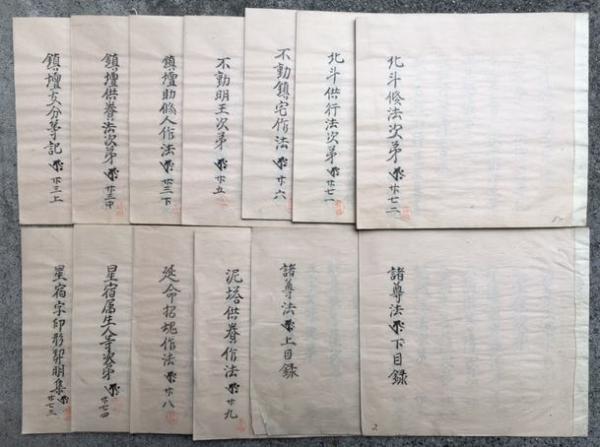 北斗修法次第 廿七二
北斗供行法次第 廿七一
不動鎮宅作法 廿六
不動明王次第 廿五
鎮壇助修人作法 廿三下
鎮壇供養法次第 廿三中
鎮壇支分等記 廿三上
諸尊法 下目録
諸尊法 上目録
泥塔供養作法 廿九
延命招魂作法 廿八
星宿属生人等次第 廿七四
星宿字印形契明集 廿七三
2